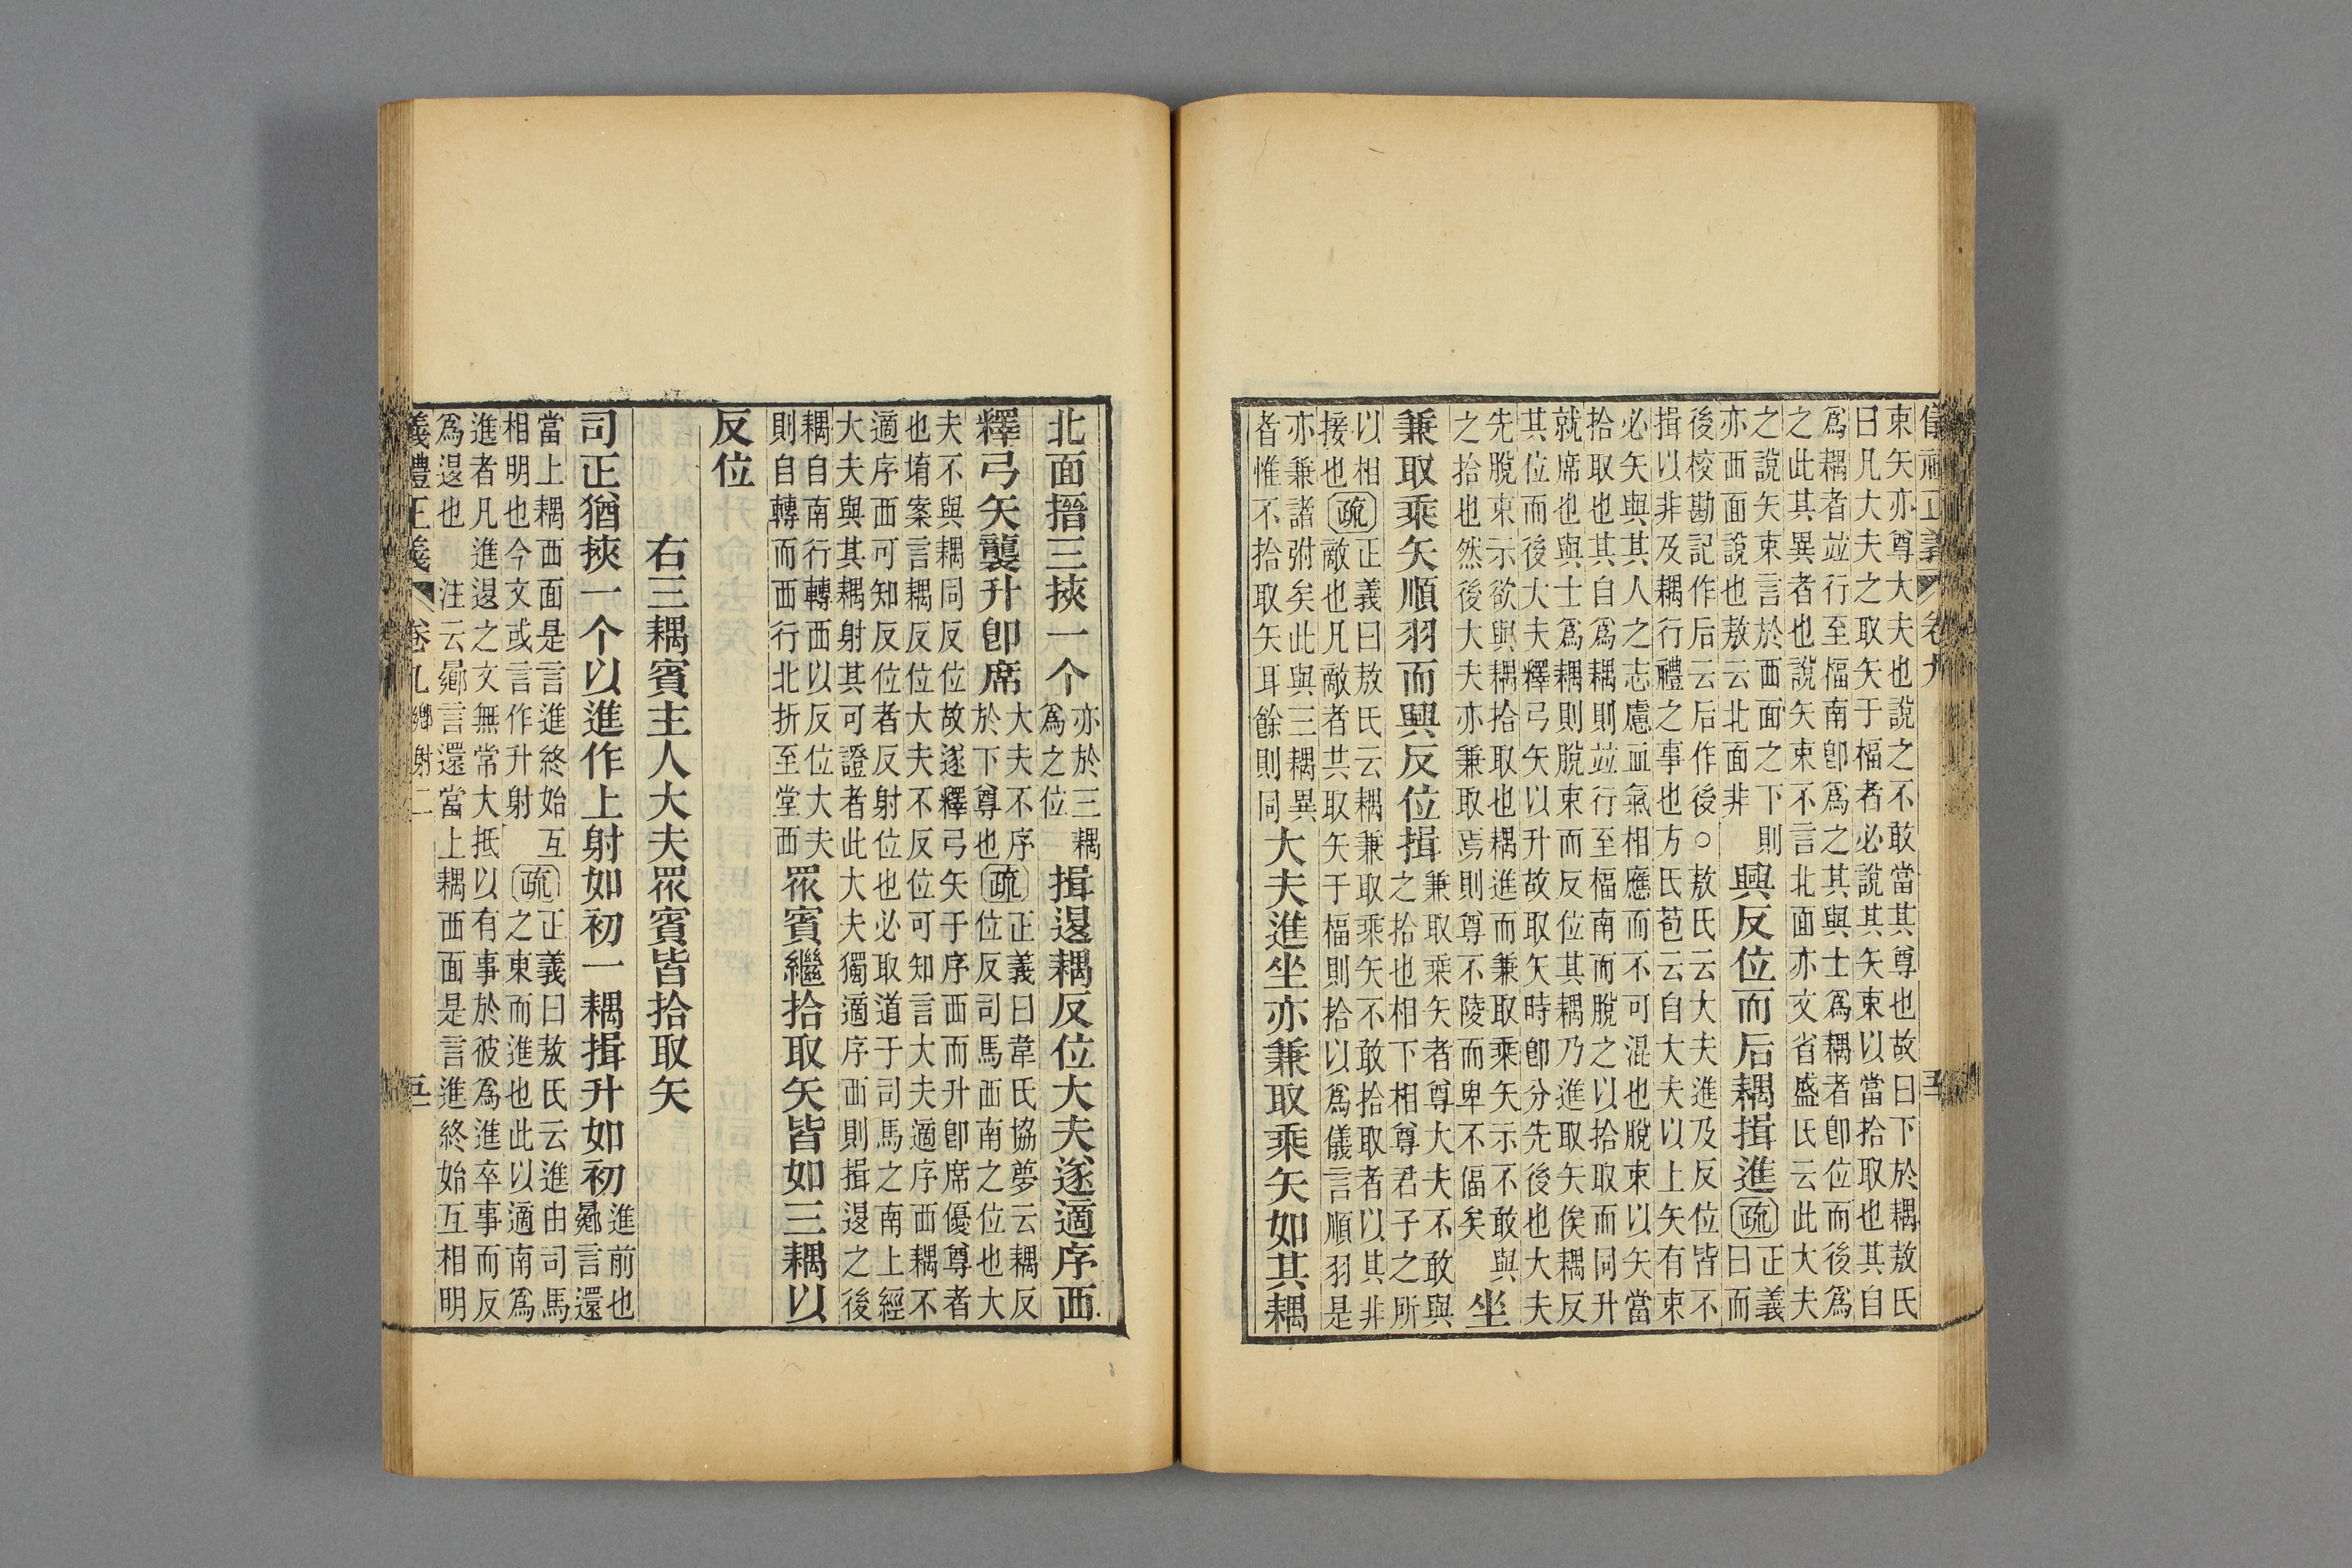 儀禮正義 卷九 五
束矢亦尊大夫也說之不敢當其尊也故曰下於耦敖氏
曰凡大夫之取矢于楅者必說其矢束以當拾取也其自
爲耦者竝行至楅南卽爲之其與士爲耦者卽位而後爲
之此其異者也說矢束不言北面亦文省盛氏云此大夫
之說矢束言於西面之下則
亦西面說也敖云北面非
興反位而后耦揖進
疏 正義
曰而
後校勘記作后云后作後○敖氏云大夫進及反位皆不
揖以非及耦行禮之事也方氏苞云自大夫以上矢有束
必矢與其人之志慮血氣相應而不可混也脫束以矢當
拾取也其自爲耦則竝行至楅南而脫之以拾取而同升
就席也與士爲耦則脫束而反位其耦乃進取矢俟耦反
其位而後大夫釋弓矢以升故取矢時卽分先後也大夫
先脫束示欲與耦拾取也耦進而兼取乘矢示不敢與
之拾也然後大夫亦兼取焉則尊不陵而卑不偪矣
坐
兼取乘矢順羽而興反位揖
兼取乘矢者尊大夫不敢與
之拾也相下相尊君子之所
以相
接也
疏 正義曰敖氏云耦兼取乘矢不敢拾取者以其非
敵也凡敵者共取矢于楅則拾以爲儀言順羽是
亦兼諸弣矣此與三耦異
者惟不拾取矢耳餘則同
大夫進坐亦兼取乘矢如其耦
北面搢三挾一个
亦於三耦
爲之位
揖退耦反位大夫遂適序西
釋弓矢襲升卽席
大夫不序
於下尊也
疏 正義曰韋氏協夢云耦反
位反司馬西南之位也大
夫不與耦同反位故遂釋弓矢于序西而升卽席優尊者
也堉案言耦反位大夫不反位可知言大夫適序西耦不
適序西可知反位者反射位也必取道于司馬之南上經
大夫與其耦射其可證者此大夫獨適序西則揖退之後
耦自南行轉西以反位大夫
則自轉而西行北折至堂西
衆賓繼拾取矢皆如三耦以
反位
右三耦賓主人大夫衆賓皆拾取矢
司正猶挾一个以進作上射如初一耦揖升如初
進前也
曏言還
當上耦西面是言進終始互
相明也今文或言作升射
疏 正義曰敖氏云進由司馬
之東而進也此以適南爲
進者凡進退之文無常大抵以有事於彼爲進卒事而反
爲退也 注云曏言還當上耦西面是言進終始互相明
儀禮正義 卷九 鄉射二 五